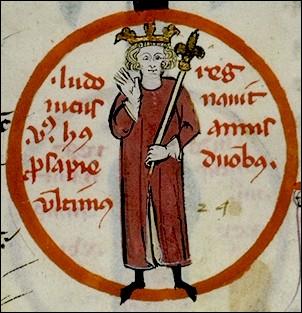 ·ludo
uicus
.vꝰ. hꝰ
ꝓsapie
vltimꝰ
reg
nauit
annis
duobꝰ.
24